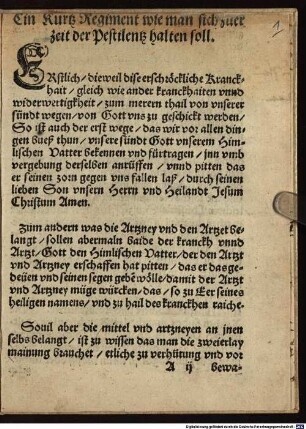 Ein Kurtz Regiment wie man sich zuer
zeit der Pestilentz halten soll.
1
ERstlich / dieweil dise erschröckliche Kranck-
hait / gleich wie ander kranckhaiten vnnd
widerwertigkheit / zum merern thail von vnserer
sündt wegen / von Gott vns zu geschickt werden /
So ist auch der erst wege / das wir vor allen din-
gen bueß thun / vnsere sündt Gott vnserem Him-
lischen Vatter bekennen vnd fürtragen / jnn vmb
vergebung derselben anrüffen / vnnd pitten das
er seinen zorn gegen vns fallen laß / durch seinen
lieben Son vnsern Herrn vnd Heilandt Jesum
Christum Amen.
Zum andern was die Artzney vnd den Artzet be-
langt / sollen abermaln baide der kranckh vnnd
Artzt / Gott den Himlischen Vatter / der den Artzt
vnd Artzney erschaffen hat pitten / das er das gede-
deüen vnd seinen segen gebē wölle / damit der Artzt
vnd Artzney müge würcken / das / so zu Eer seines
heiligen namens / vnd zu hail des kranckhen raiche.
Souil aber die mittel vnd artzneyen an jnen
selbs belangt / ist zu wissen das man die zweierlay
mainung brauchet / etliche zu verhütung vnd vor
A ij bewa-